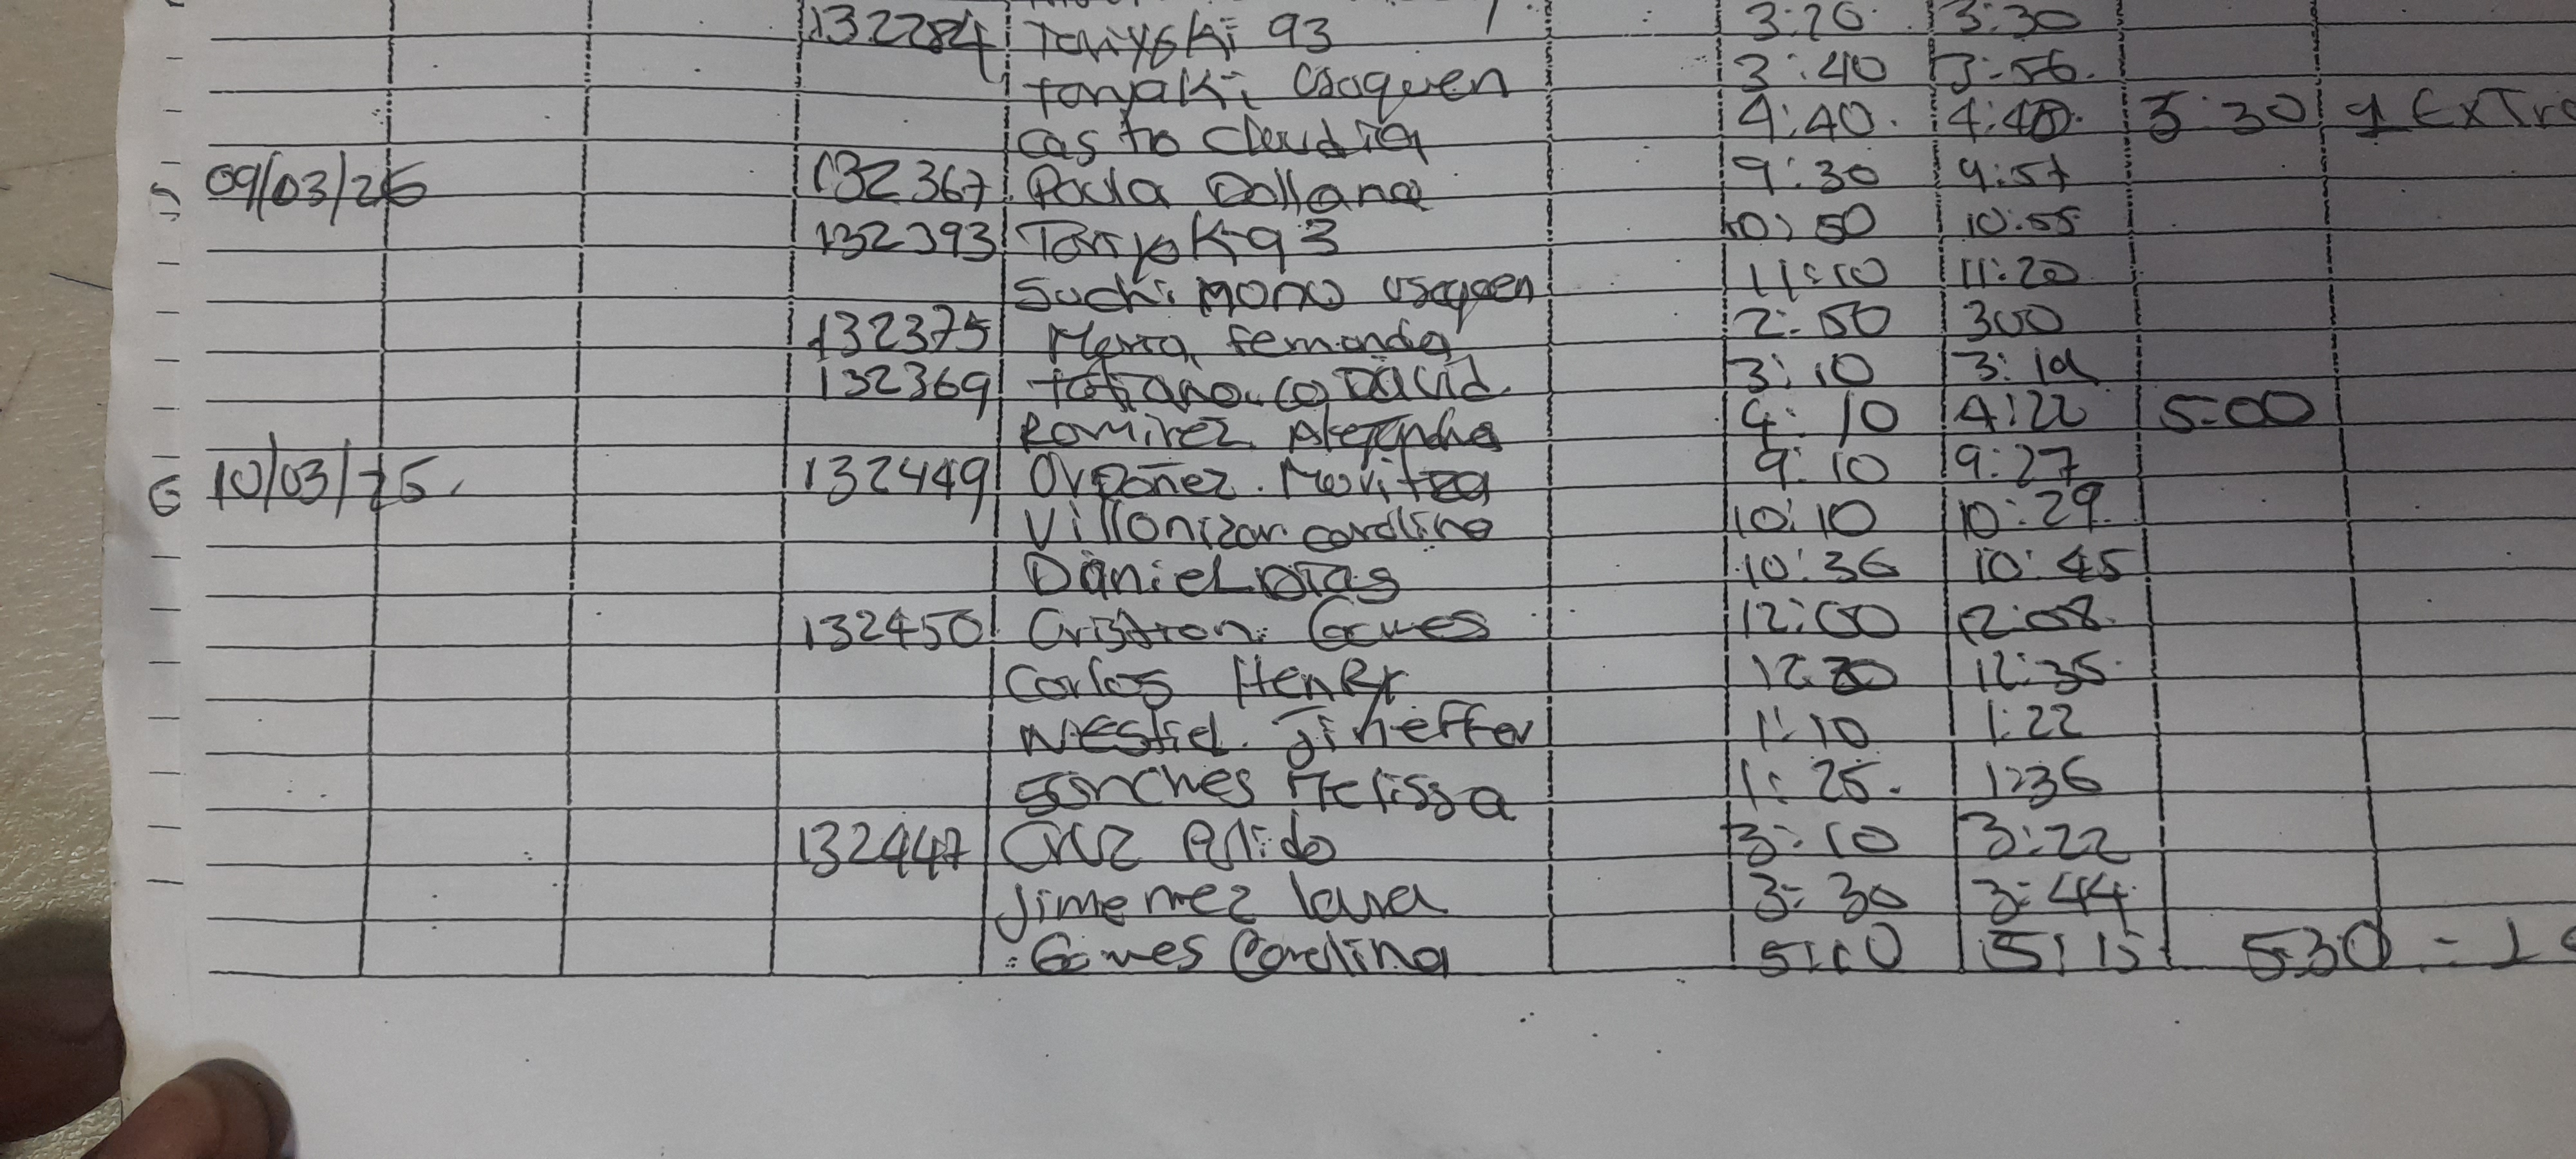 132284 Toriyaki 93 3:20 3:30
toryaki Usaquen 3:40 3:56.
castro Claudia 4:40. 4:40. 5:30 1 Extra
09/03/26 132367 Paola Dollana 9:30 9:57
132393 Toryak 93 10:50 10:55
Suchi mono usaquen 11:10 11:20
132375 Maria fernanda 2:50 300
132369 David 3:10 3:19
Ramirez Alejandra 4:10 4:22 5:00
6 10/03/26. 132449 Ordoñez. Maritza 9:10 9:27
Villanizar. carolina 10:10 10:29.
Daniel Dias 10:36 10:45
132450 Cristian. Gomes 12:00 12:08.
Carlos Henry 12:30 12:35.
Nestiel. Jineffer 1:10 1:22
Sanches Melissa 1:25. 1:36
132447 Cruz Pulido 3:10 3:22
Jimemez laura 3:30 3:44
Gomes Carolina 5:10 5:15 530 = 1